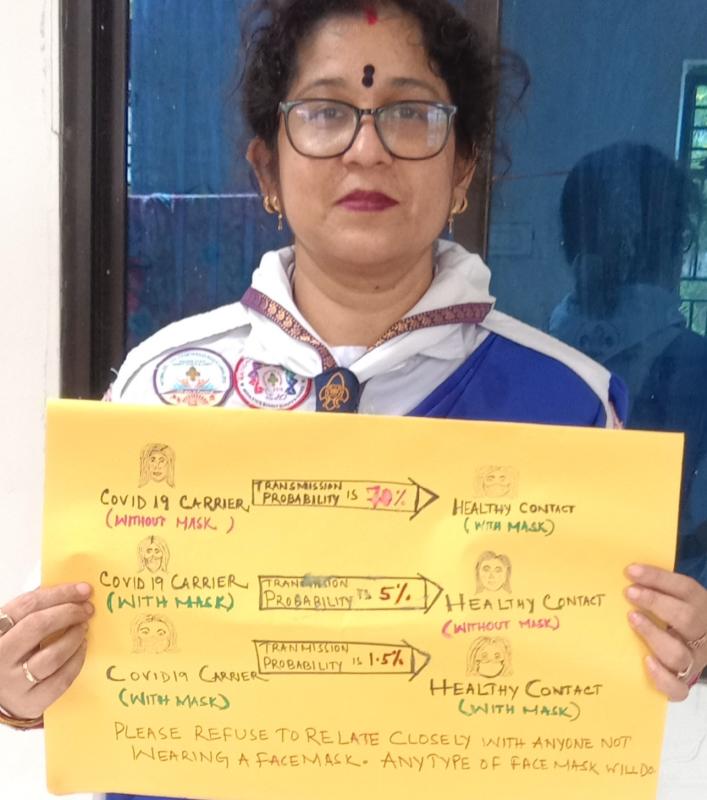 TRANSMISSION
PROBABILITY IS 70%
COVID 19 CARRIER
(WITHOUT MASK )
HEALTHY CONTACT
(WITH MASK)
TRANSMISSION
PROBABILITY IS 5%
COVID 19 CARRIER
(WITH MASK)
HEALTHY CONTACT
(WITHOUT MASK)
TRANMISSION
PROBABILITY IS 1.5%
COVID19 CARRIER
(WITH MASK)
HEALTHY CONTACT
(WITH MASK)
PLEASE REFUSE TO RELATE CLOSELY WITH ANYONE NOT
WEARING A FACEMASK. ANYTYPE OF FACE MASK WILL DO